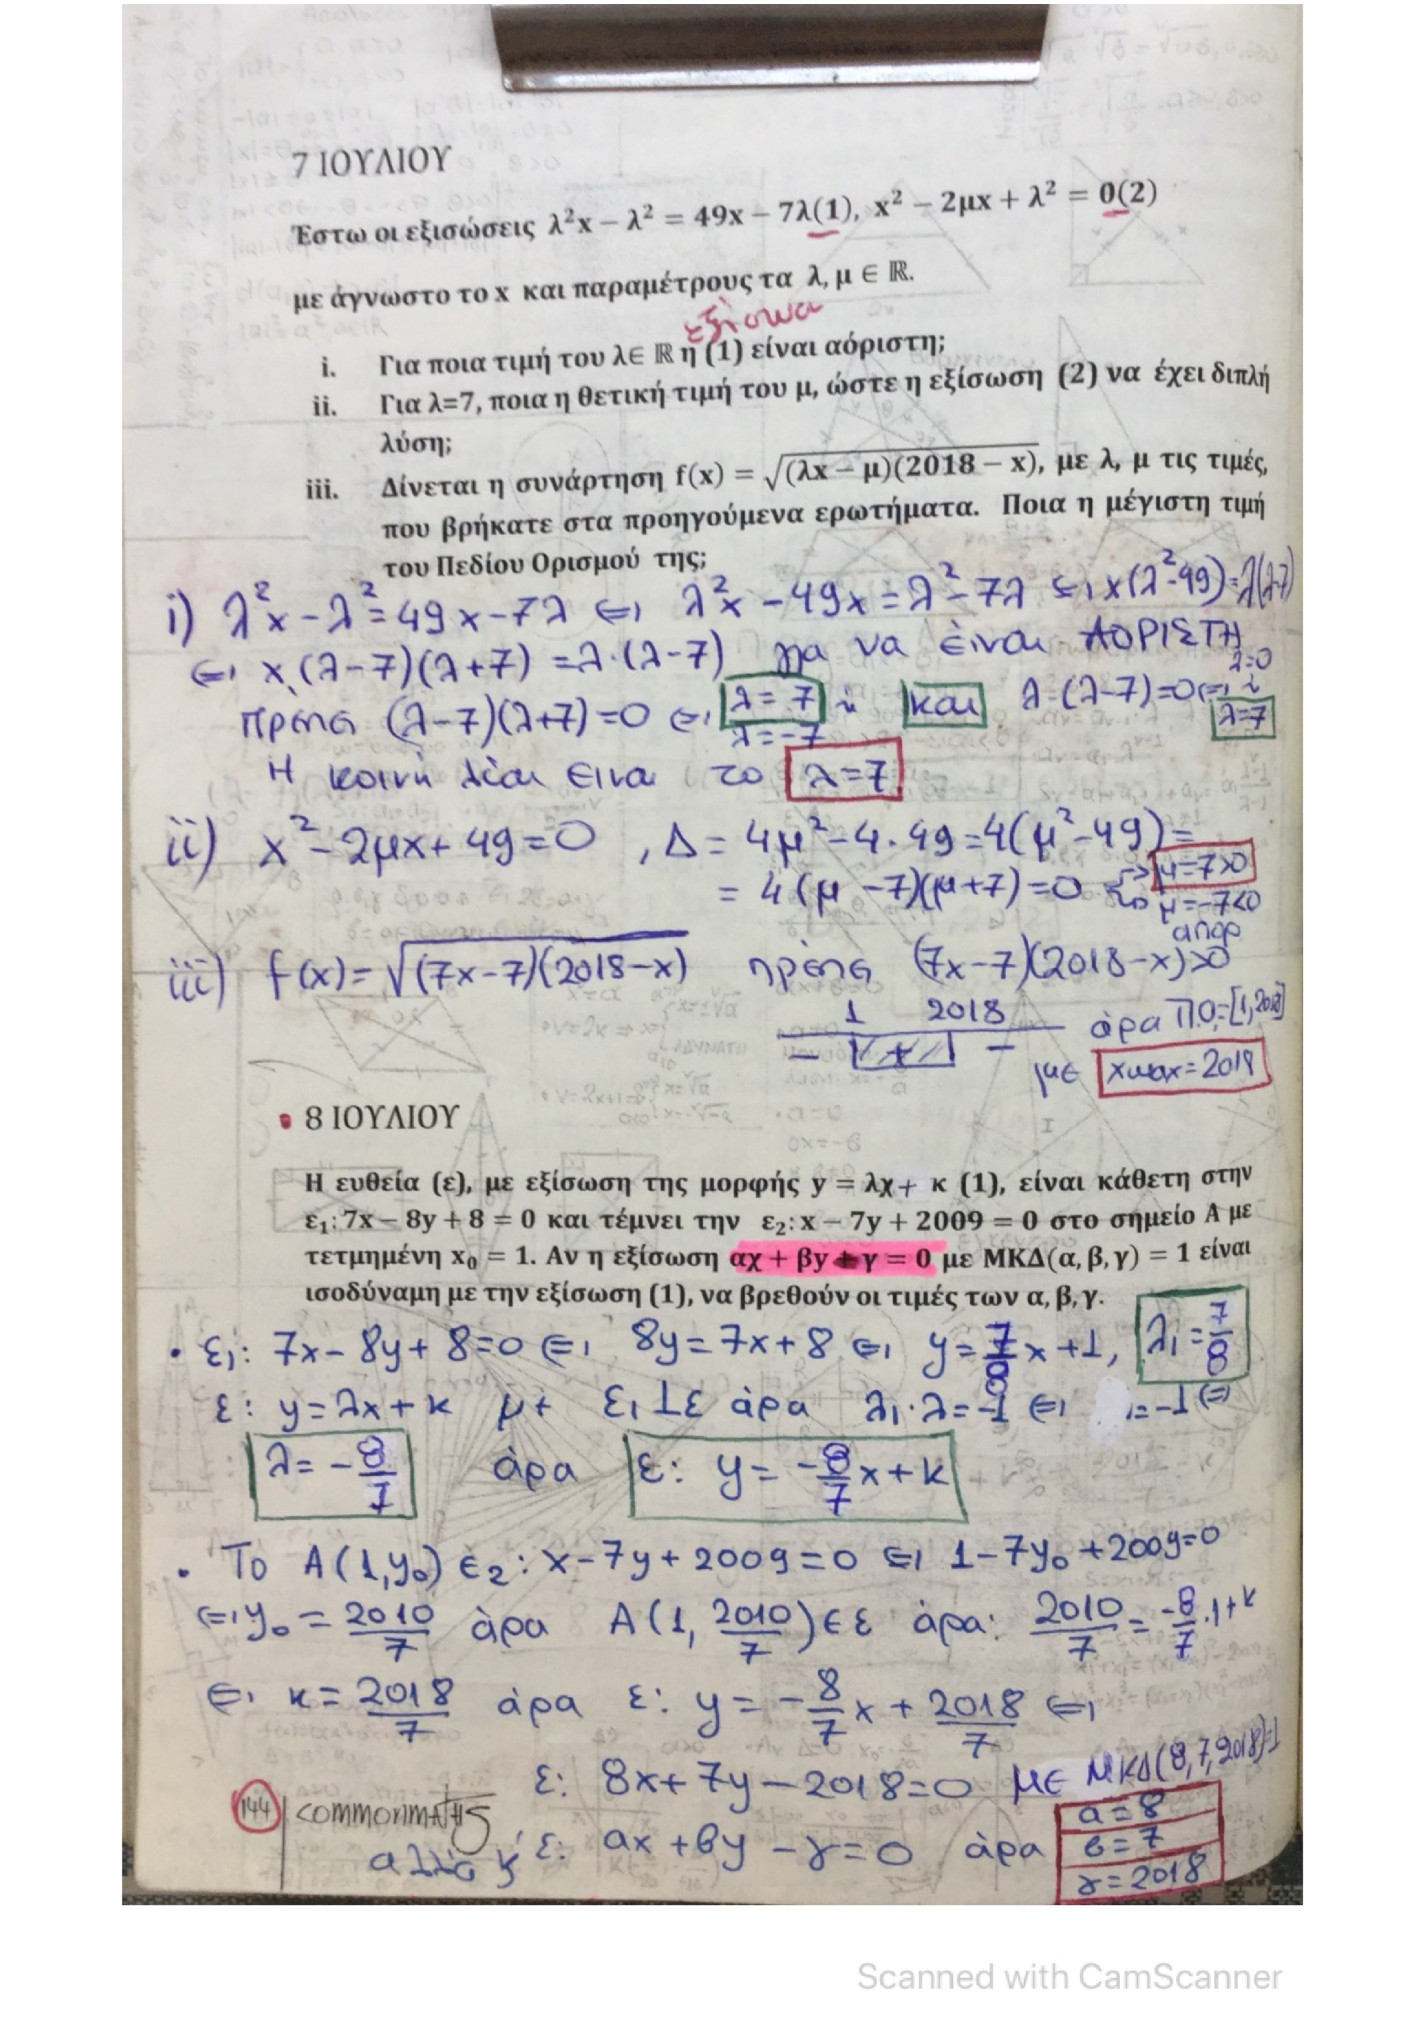 7 ΙΟΥΛΙΟΥ
Έστω οι εξισώσεις λ²x − λ² = 49x − 7λ(1), x² − 2μx + λ² = 0(2)
με άγνωστο το x και παραμέτρους τα λ, μ ∈ ℝ.
εξίσωση
i. Για ποια τιμή του λ∈ ℝ η (1) είναι αόριστη;
ii. Για λ=7, ποια η θετική τιμή του μ, ώστε η εξίσωση (2) να έχει διπλή
λύση;
iii. Δίνεται η συνάρτηση f(x) = √(λx − μ)(2018 − x), με λ, μ τις τιμές,
που βρήκατε στα προηγούμενα ερωτήματα. Ποια η μέγιστη τιμή
του Πεδίου Ορισμού της;
i) λ²x − λ² = 49x − 7λ ⇔ λ²x − 49x = λ² − 7λ ⇔ x(λ²-49) = λ(λ-7)
⇔ x(λ−7)(λ+7) = λ·(λ−7) για να είναι ΑΟΡΙΣΤΗ
πρέπει (λ−7)(λ+7) = 0 ⇔ λ = 7 ή λ = −7 και λ·(λ−7) = 0 ⇔ λ=0 ή λ=7
Η κοινή λύση είναι το λ = 7
ii) x² − 2μx + 49 = 0 , Δ = 4μ² − 4·49 = 4(μ²−49) =
= 4(μ −7)(μ+7) = 0 μ=7>0
μ=−7<0
απορ
iii) f(x) = √(7x−7)(2018−x) πρέπει (7x−7)(2018−x)≥0
1 2018
− + − άρα Π.Ο.=[1,2018]
με xmax = 2018
8 ΙΟΥΛΙΟΥ
Η ευθεία (ε), με εξίσωση της μορφής y = λχ + κ (1), είναι κάθετη στην
ε₁: 7x − 8y + 8 = 0 και τέμνει την ε₂: x − 7y + 2009 = 0 στο σημείο Α με
τετμημένη x₀ = 1. Αν η εξίσωση αχ + βy + γ = 0 με ΜΚΔ(α, β, γ) = 1 είναι
ισοδύναμη με την εξίσωση (1), να βρεθούν οι τιμές των α, β, γ.
• ε₁: 7x − 8y + 8 = 0 ⇔ 8y = 7x + 8 ⇔ y = 7/8 x + 1, λ₁ = 7/8
ε: y = λx + κ με ε₁ ⊥ ε άρα λ₁·λ = −1 ⇔ = −1 ⇔
λ = − 8/7 άρα ε: y = − 8/7 x + κ
• Το Α(1, y₀) ∈ ε₂: x − 7y + 2009 = 0 ⇔ 1 − 7y₀ + 2009 = 0
⇔ y₀ = 2010/7 άρα Α(1, 2010/7) ∈ ε άρα: 2010/7 = −8/7 · 1 + κ
⇔ κ = 2018/7 άρα ε: y = − 8/7 x + 2018/7 ⇔
ε: 8x + 7y − 2018 = 0 με ΜΚΔ(8,7,2018)=1
144 COMMONMATHS
αλλά κ' ε: αx + βy − γ = 0 άρα α = 8
β = 7
γ = 2018
Scanned with CamScanner